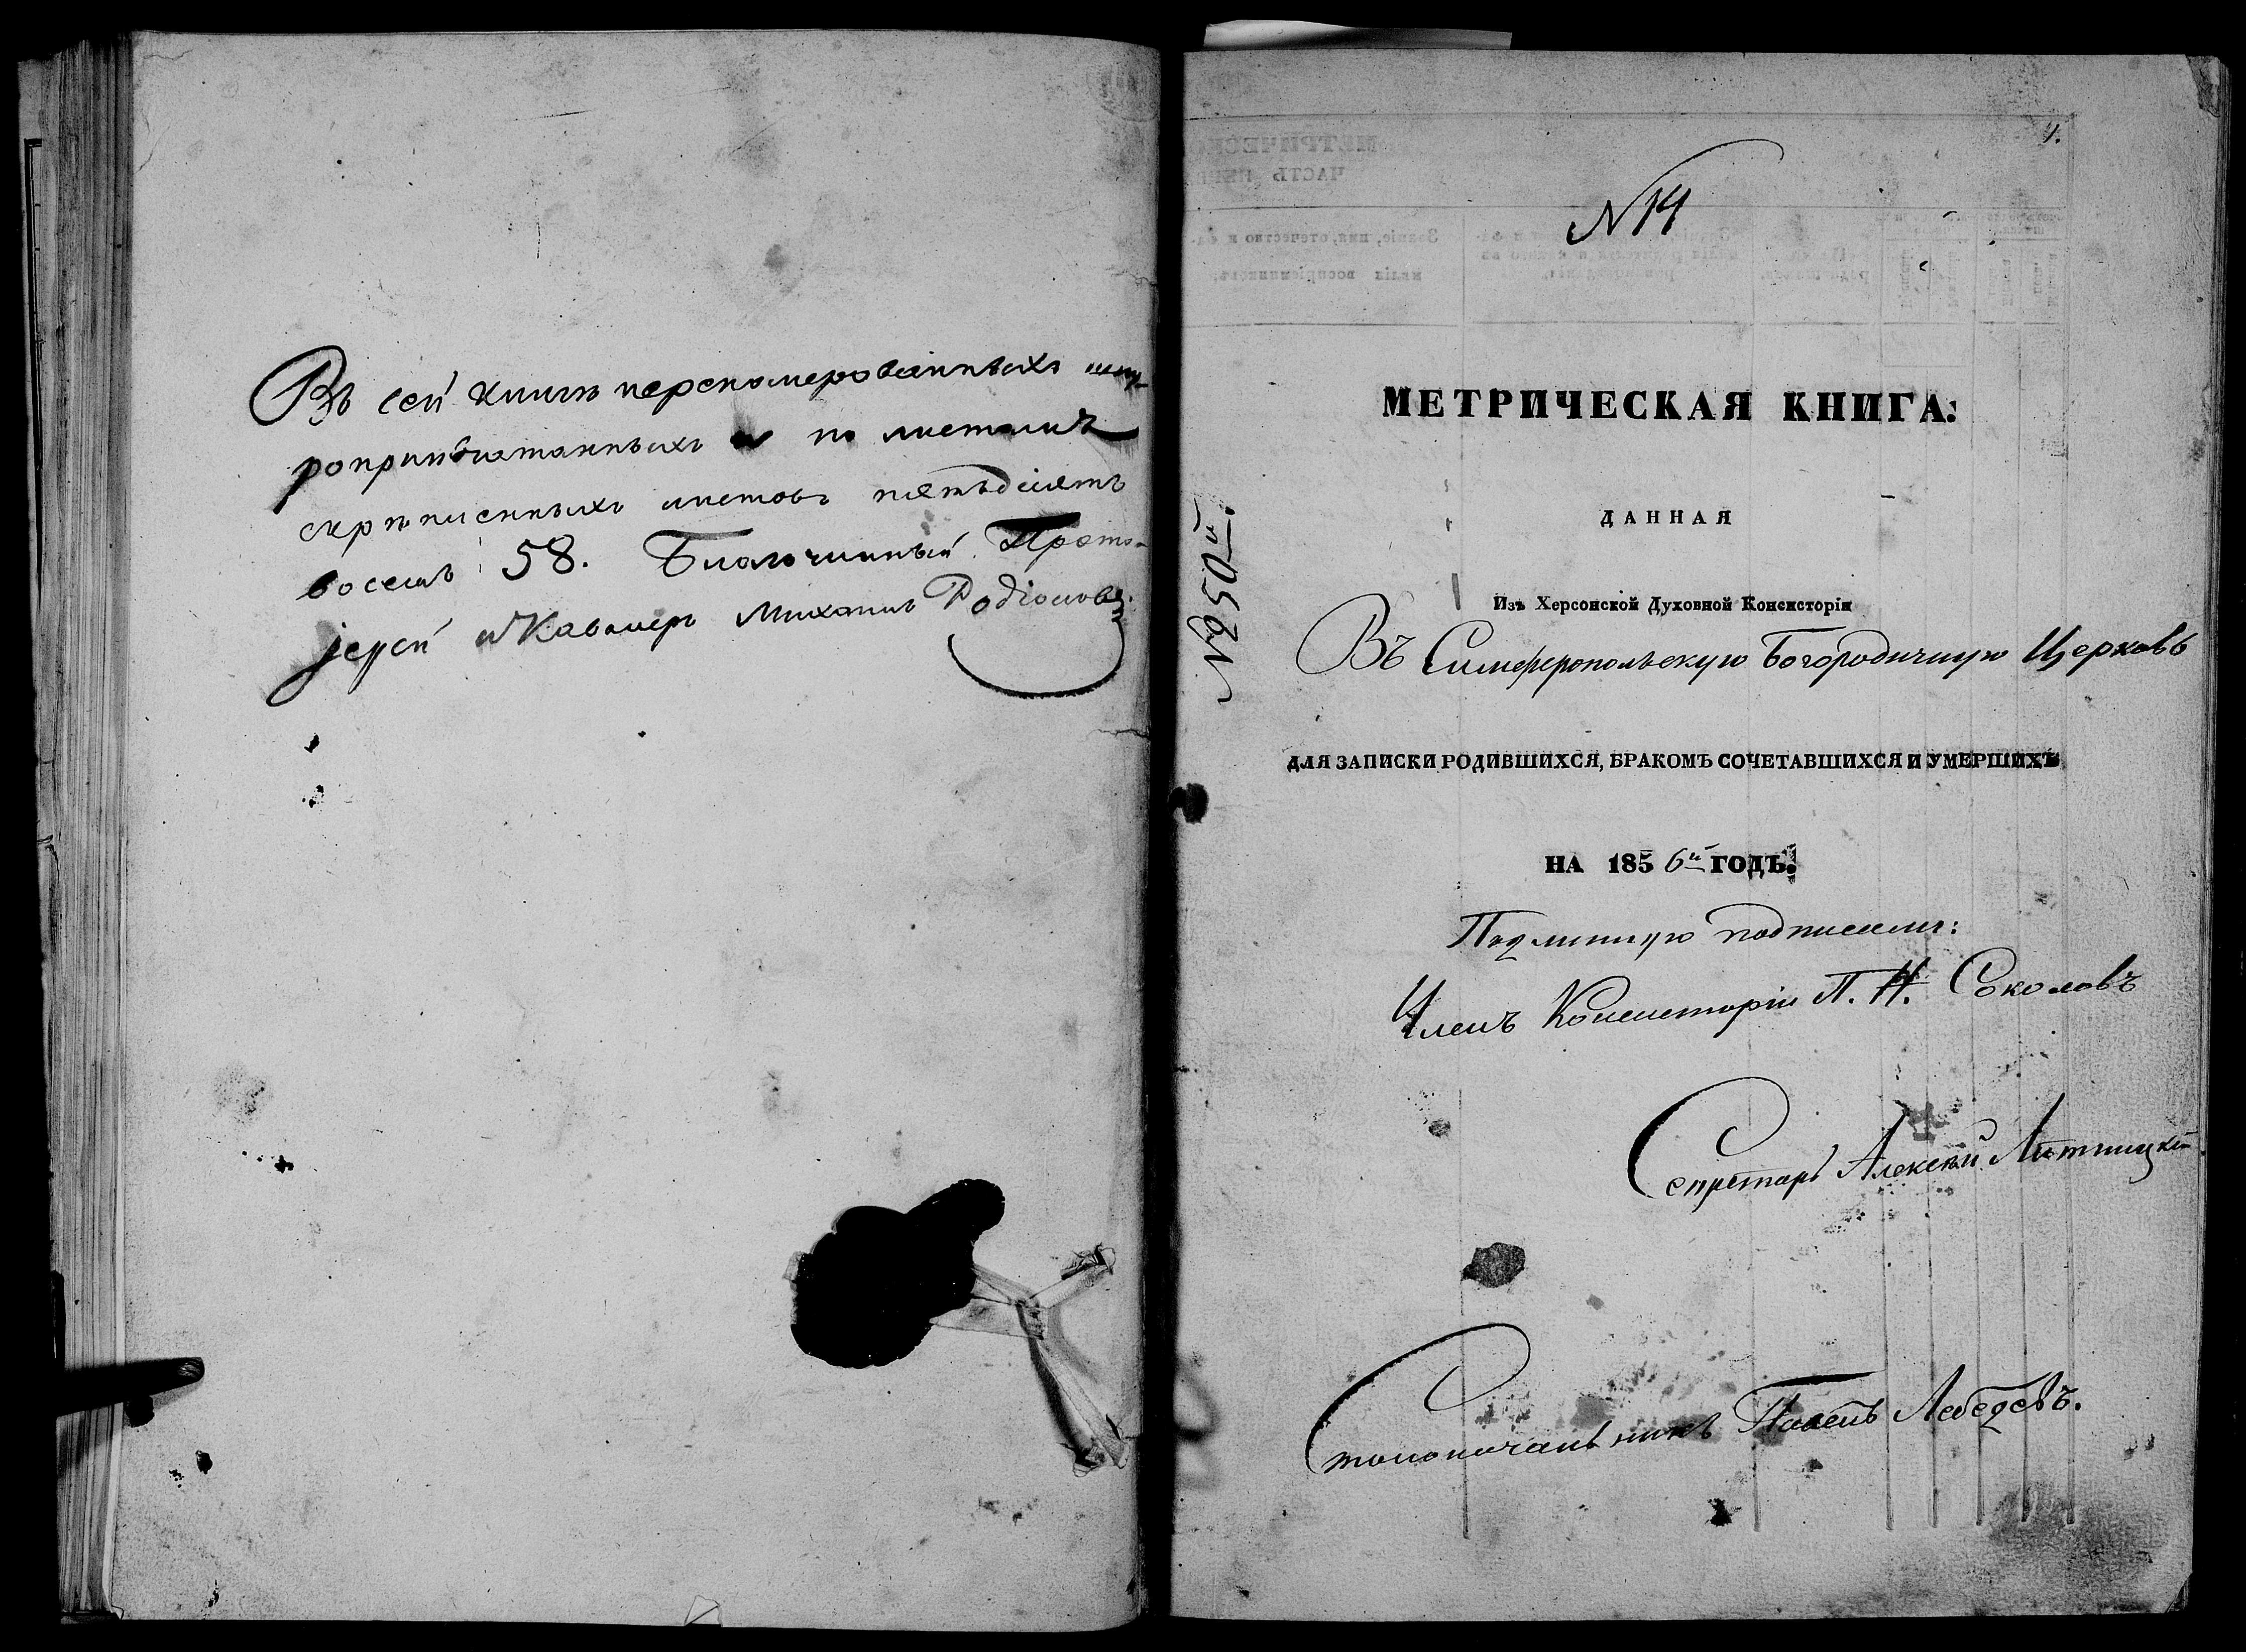 Въ сей книгѣ переномерованныхъ шну-
роприпечатанныхъ и по листамъ
скрѣпленныхъ листовъ пятьдесятъ
восемь 58. Благочинный Прото-
іерей и Кавалеръ Михаилъ Родіоновъ.
N 14
МЕТРИЧЕСКАЯ КНИГА:
ДАННАЯ
Изъ Херсонской Духовной Консисторіи
Въ Симферопольскую Богородичную Церковь
ДЛЯ ЗАПИСКИ РОДИВШИХСЯ, БРАКОМЪ СОЧЕТАВШИХСЯ И УМЕРШИХЪ
НА 1856й ГОДЪ.
Подлинную подписали:
Членъ Консисторіи П. Н. Соколовъ
Секретарь Алексѣй Лѣтницкій
Столоначальникъ Павелъ Лебедевъ.